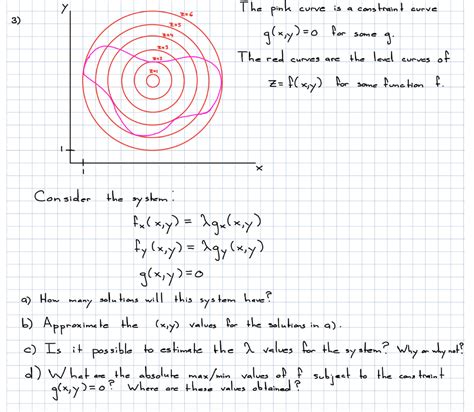 3)
y
z=6
z=5
z=4
z=3
z=2
z=1
1
1
x
The pink curve is a constraint curve
g(x,y)=0 for some g.
The red curves are the level curves of
z=f(x,y) for some function f.
Consider the system:
fx(x,y) = λgx(x,y)
fy(x,y) = λgy(x,y)
g(x,y)=0
a) How many solutions will this system have?
b) Approximate the (x,y) values for the solutions in a).
c) Is it possible to estimate the λ values for the system? Why or why not?
d) What are the absolute max/min values of f subject to the constraint
g(x,y)=0? Where are these values obtained?